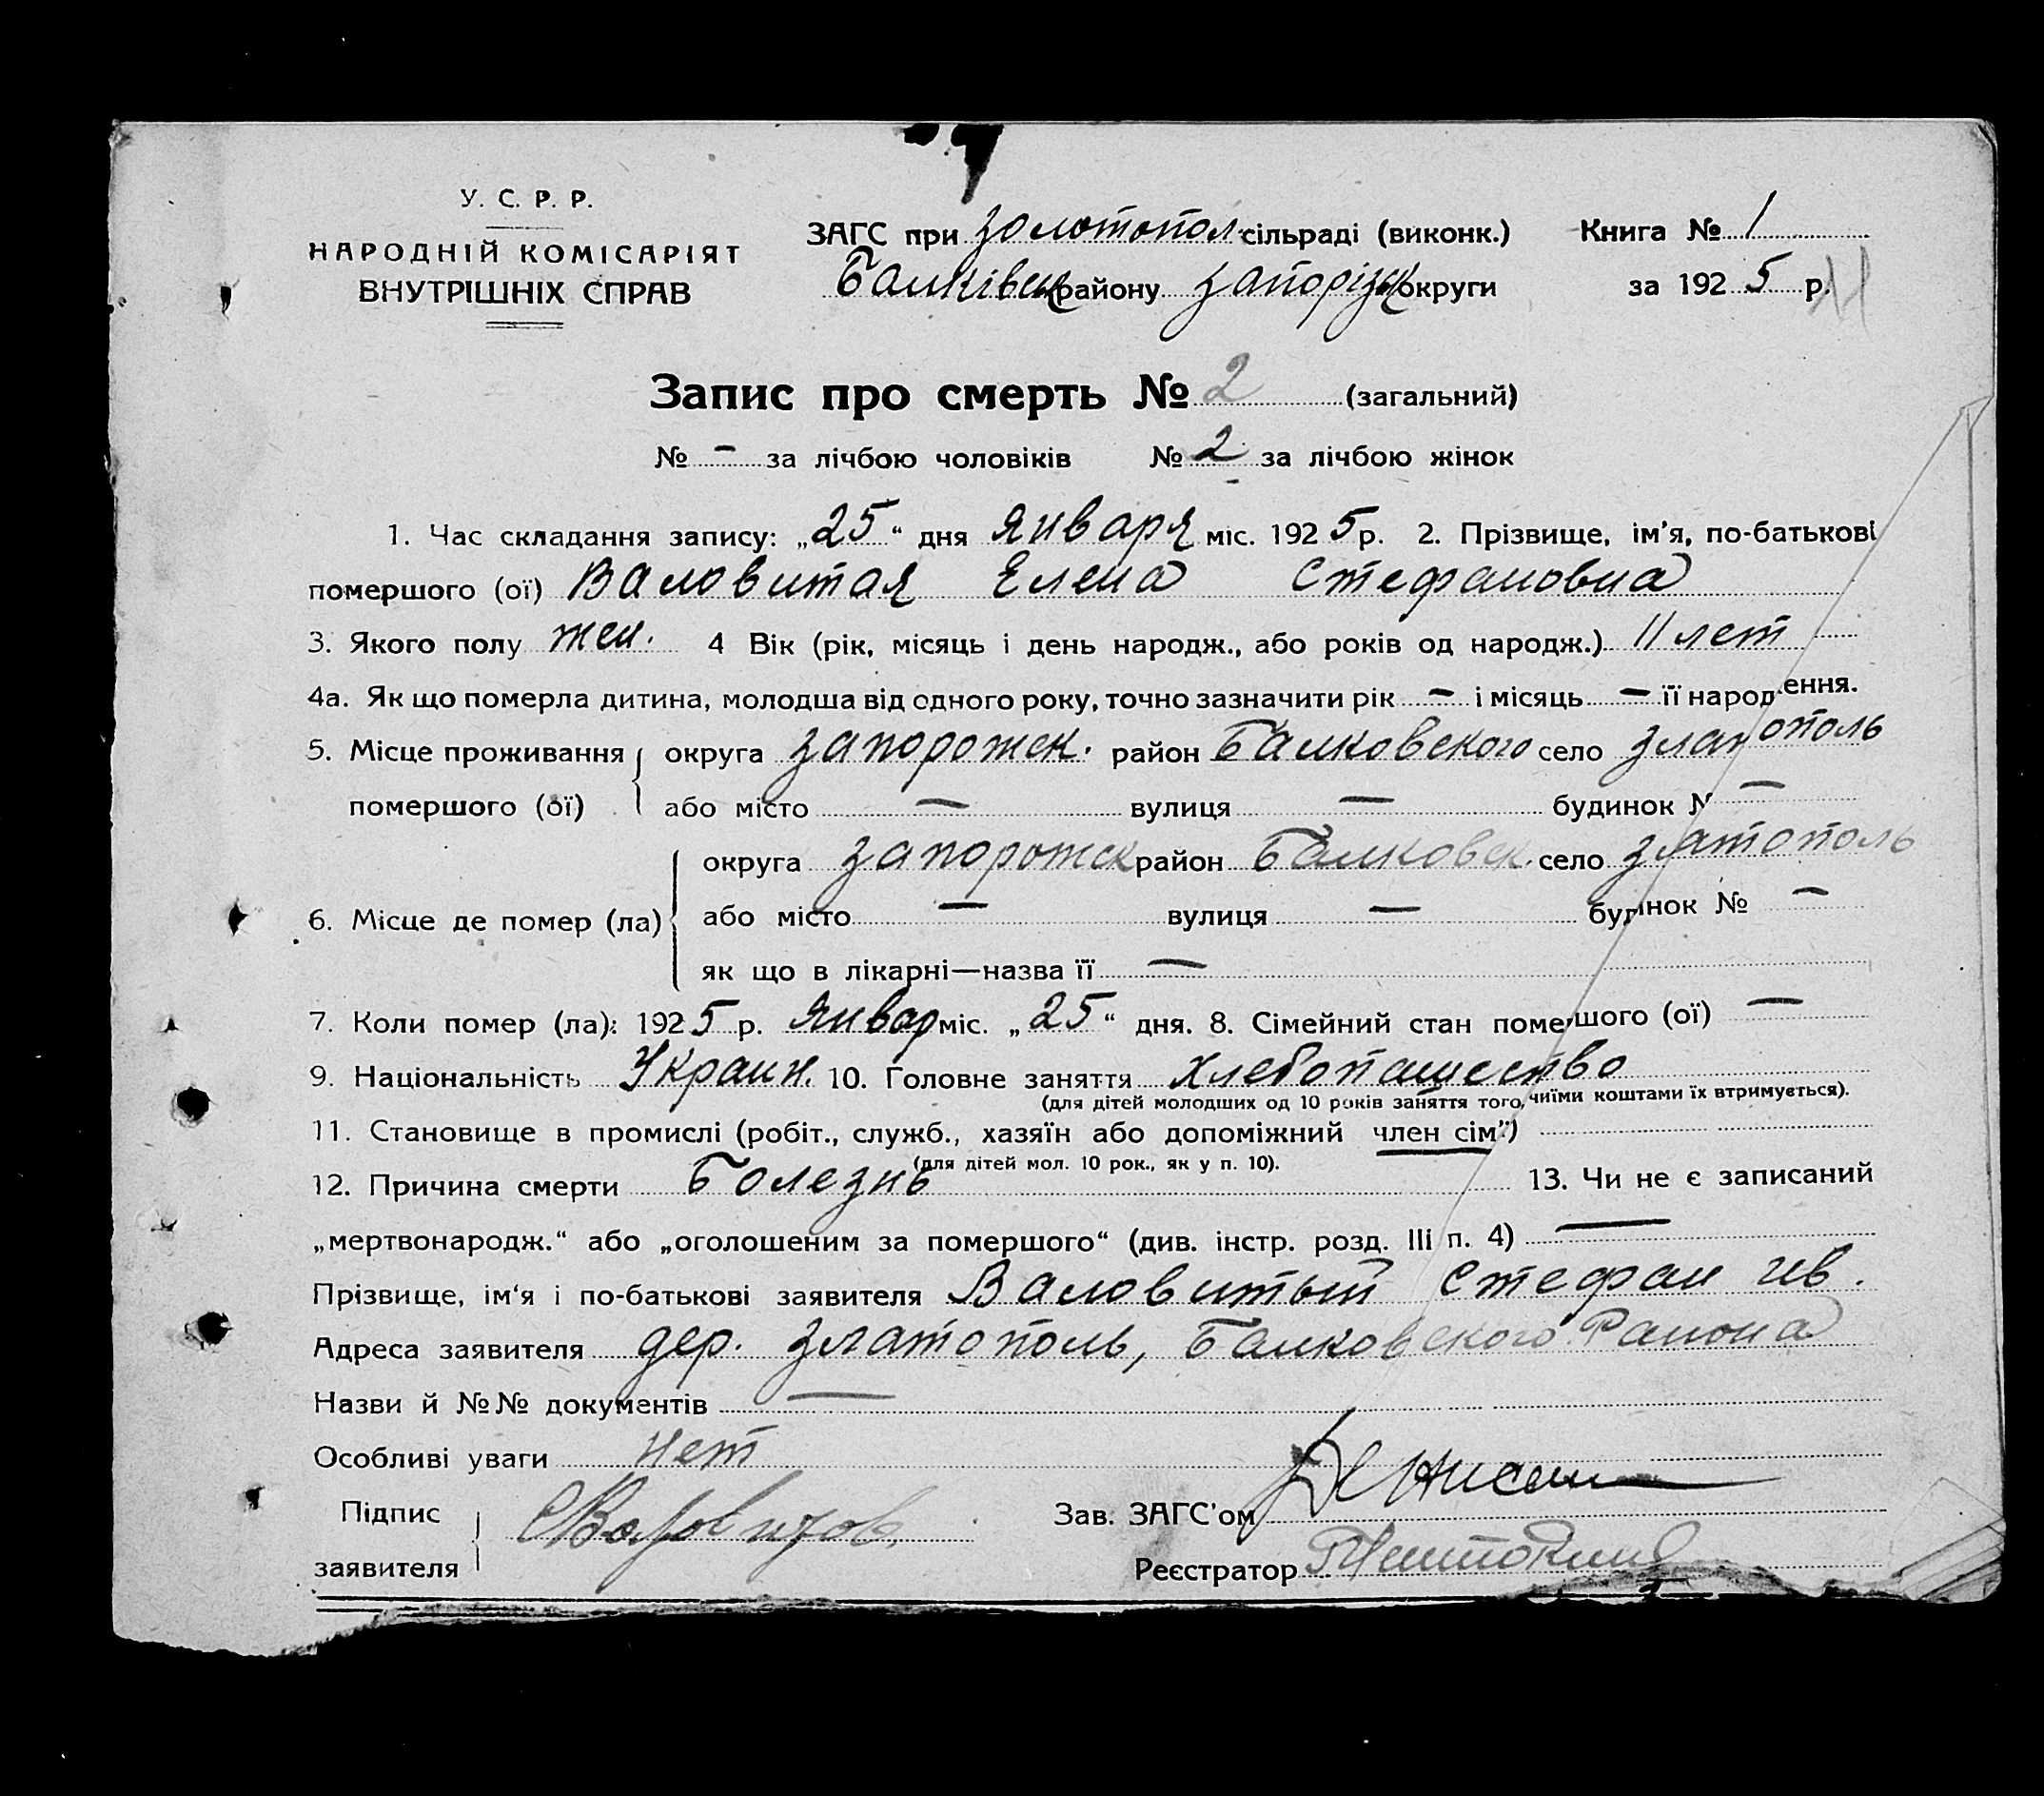 У. С. Р. Р.
НАРОДНІЙ КОМІСАРІЯТ
ВНУТРІШНІХ СПРАВ
ЗАГС при Золотопол. сільраді (виконк.) Книга № 1
Балківськ району Запорізьк округи за 1925 р.
Запис про смерть № 2 (загальний)
№ – за лічбою чоловіків № 2 за лічбою жінок
1. Час складання запису: „25“ дня Января міс. 1925 р. 2. Прізвище, ім'я, по-батькові
помершого (ої) Валовитая Елена Стефановна
3. Якого полу жен. 4 Вік (рік, місяць і день народж., або років од народж.) 11 лет
4а. Як що померла дитина, молодша від одного року, точно зазначити рік – і місяць – її народження.
5. Місце проживання округа Запорожск. район Балковского село Златополь
помершого (ої) або місто — вулиця — будинок № —
округа Запорожск район Балковск. село Златополь
6. Місце де помер (ла) або місто — вулиця — будинок № —
як що в лікарні—назва її —
7. Коли помер (ла): 1925 р. Январ міс. „25“ дня. 8. Сімейний стан помершого (ої) —
9. Національність Украин. 10. Головне заняття Хлебопашество
(для дітей молодших од 10 років заняття того, чиїми коштами їх втримується).
11. Становище в промислі (робіт., служб., хазяїн або допоміжний член сім'ї)
(для дітей мол. 10 рок., як у п. 10).
12. Причина смерти Болезнь 13. Чи не є записаний
„мертвонародж.“ або „оголошеним за помершого“ (див. інстр. розд. III п. 4) —
Прізвище, ім'я і по-батькові заявителя Валовитый Стефан Ив.
Адреса заявителя дер. Златополь, Балковского Района
Назви й №№ документів —
Особливі уваги нет
Підпис
заявителя
Зав. ЗАГС'ом
Реєстратор